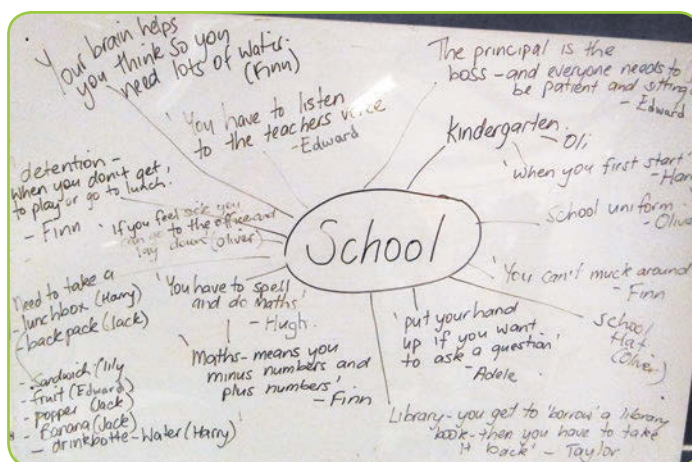 Your brain helps
you think so you
need lots of water.
(Finn)
'You have to listen
to the teachers voice
- Edward
The principal is the
boss - and everyone needs to
be patient and sitting
- Edward
Kindergarten.
- Oli
'when you first start'
- Harr
School uniform -
Olive
'You can't muck around
- Finn
School
Hat
(Oliver)
'put your hand
up if you want
to ask a question'
- Adele
Library - you get to 'borrow' a library
book - then you have to take
it back' - Taylor
School
detention -
when you don't get
to play or go to lunch.
- Finn
'If you feel sick you
can go to the office and
lay down (Oliver)
'You have to spell
and do maths'
- Hugh.
'Maths - means you
minus numbers and
plus numbers'
- Finn
Need to take a
- lunchbox (Harry)
- backpack (Jack)
- Sandwich (lily
- fruit (Edward)
- popper (Jack)
- Banana (Jack)
- drinkbottle - Water (Harry)